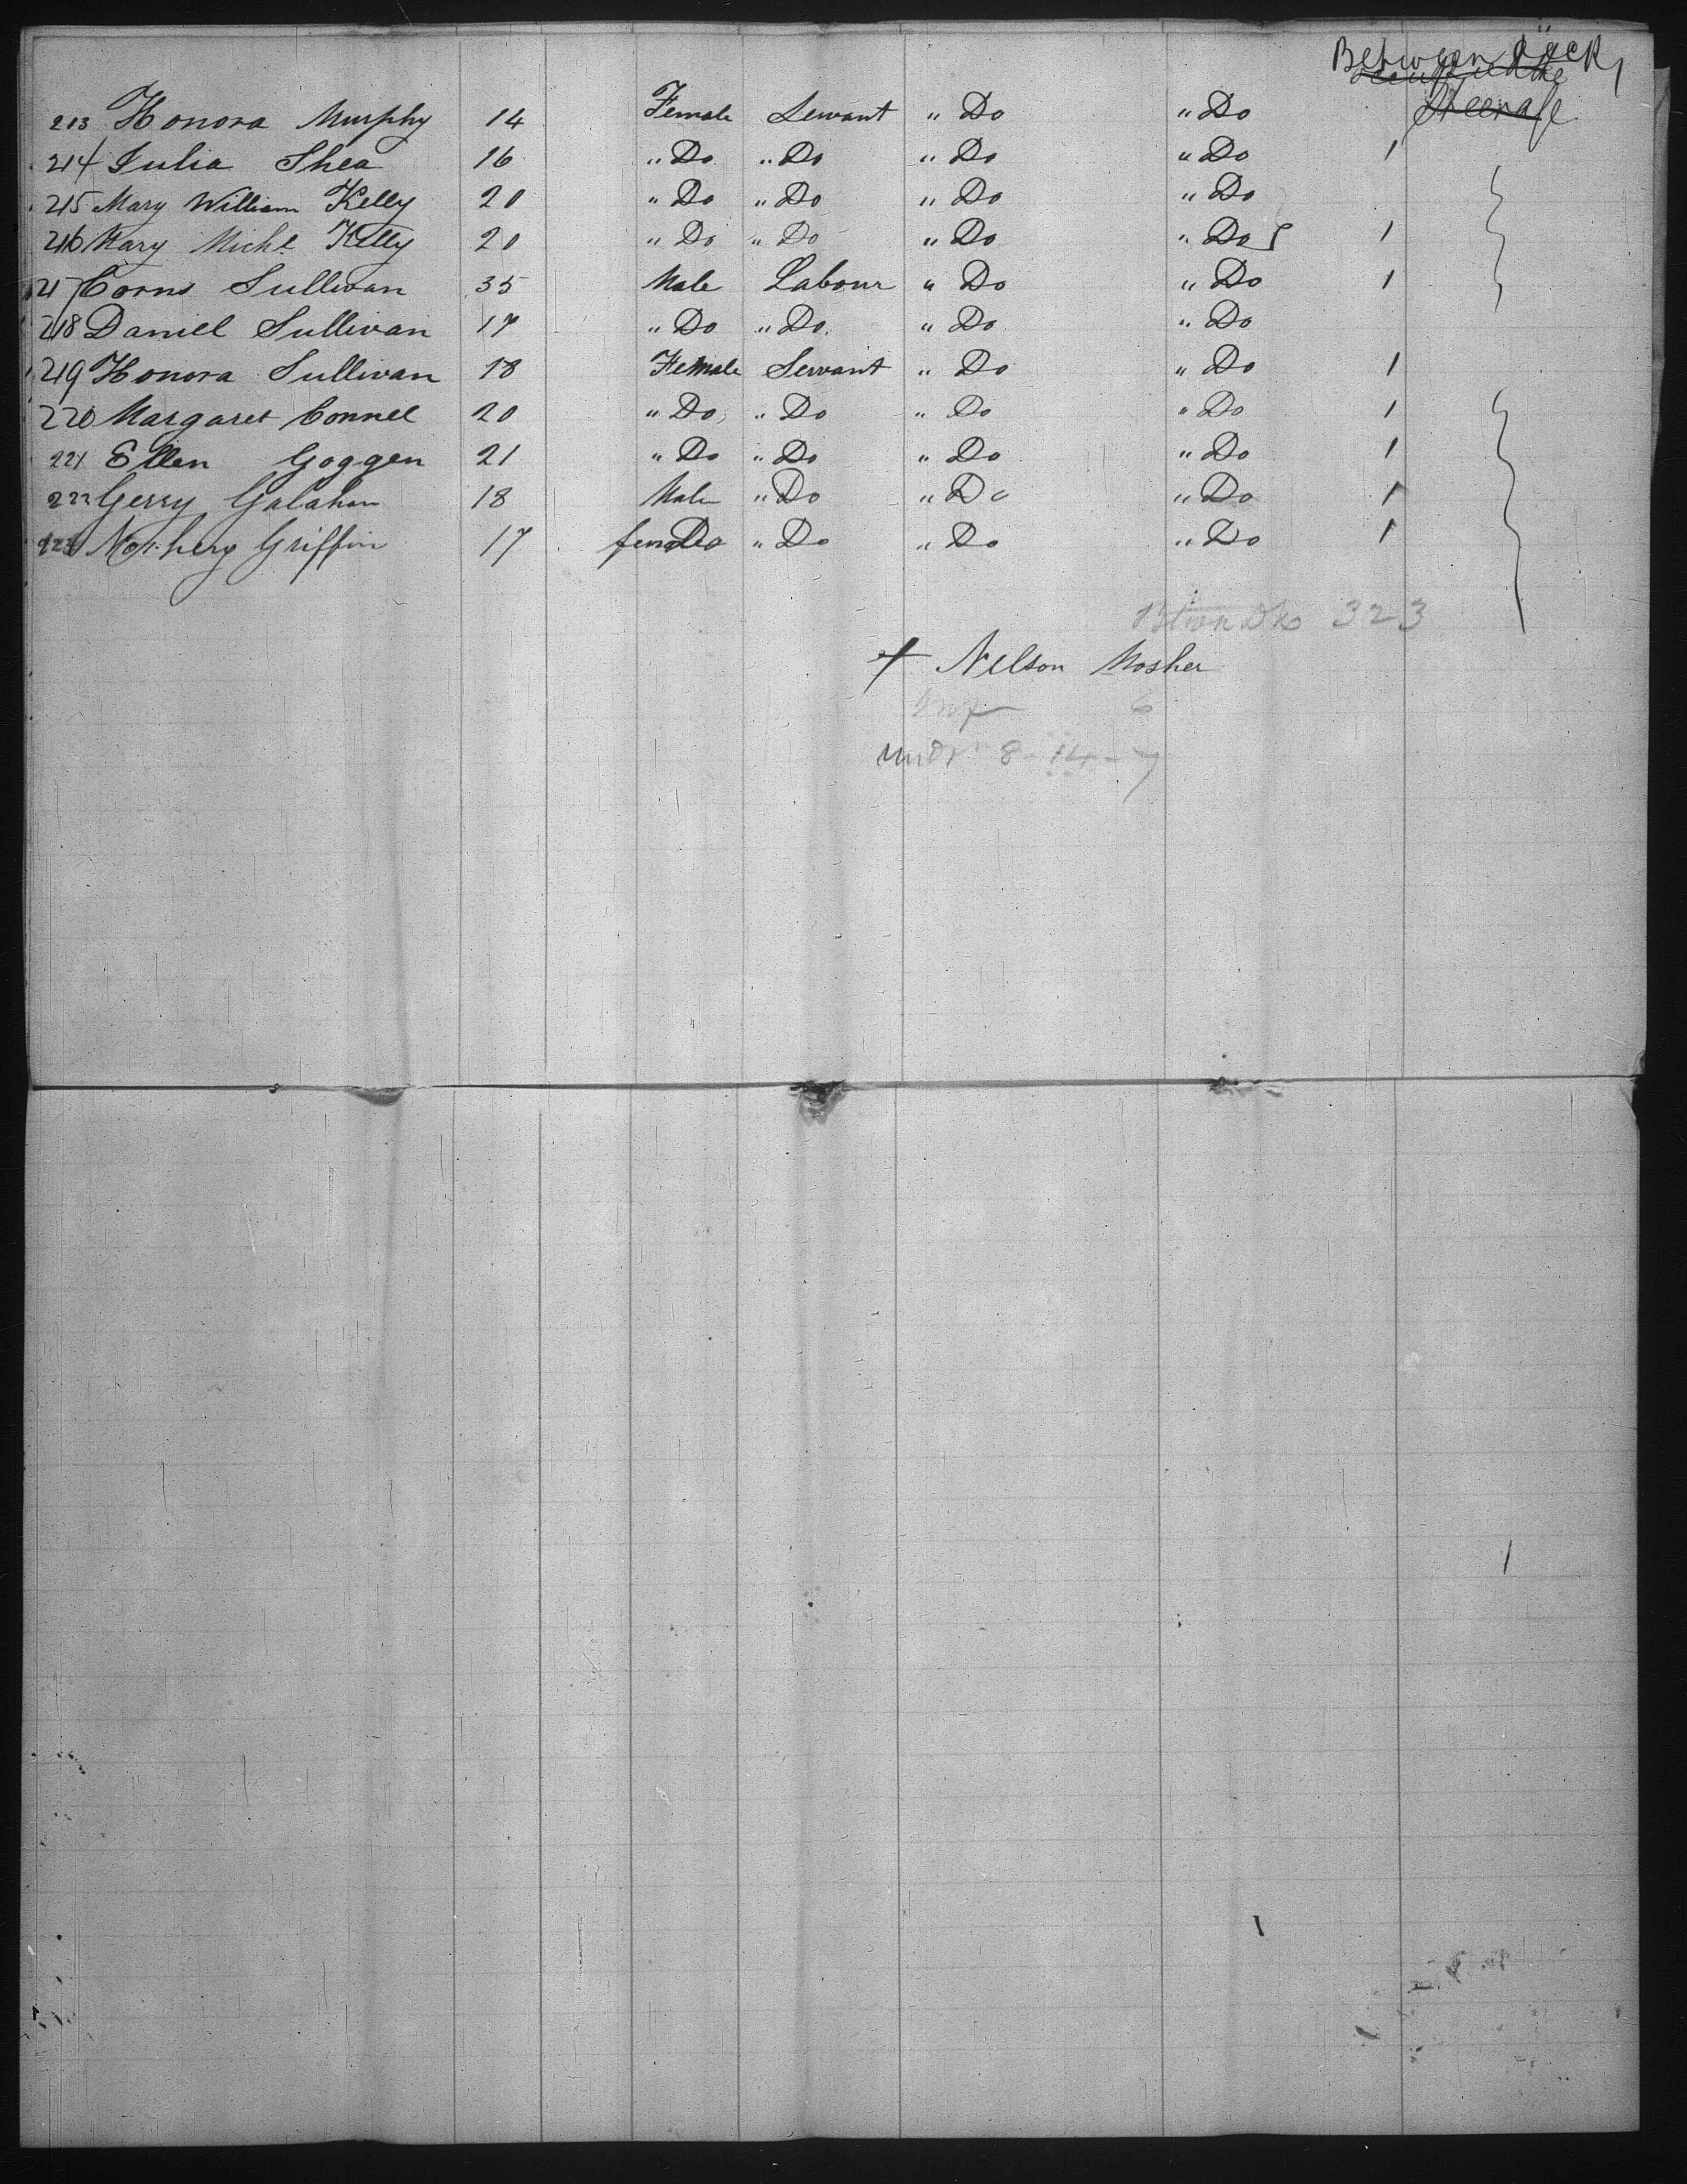 Between Deck 1
Steerage
213 Honora Murphy 14 Female Servant " Do " Do
214 Julia Shea 16 " Do " Do " Do " Do 1
215 Mary William Kelly 20 " Do " Do " Do " Do
216 Mary Michl Kelly 20 " Do " Do " Do " Do 1
217 Corns Sullivan 35 Male Labour " Do " Do 1
218 Daniel Sullivan 17 " Do " Do " Do " Do
219 Honora Sullivan 18 Female Servant " Do " Do 1
220 Margaret Connel 20 " Do " Do " Do " Do 1
221 Ellen Goggen 21 " Do " Do " Do " Do 1
222 Gerry Galahan 18 Male " Do " Do " Do 1
223 Griffin 17 female Do " Do " Do " Do 1
323
Nelson Mosher
6
8-14-7